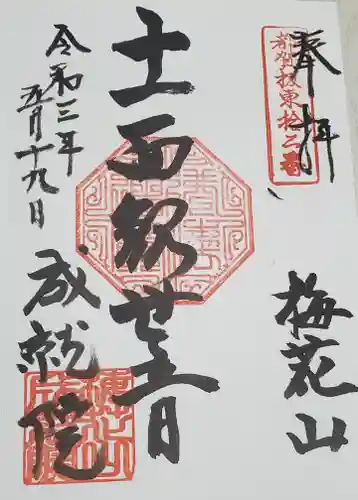 奉拝
都賀坂東拾三番
梅花山
十一面観世音
令和三年
五月十九日
成就院